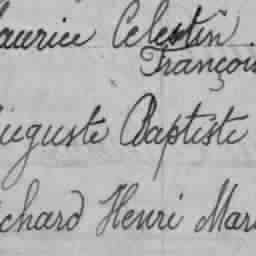 aurice Celestin
François
uguste Baptiste
chard Henri Mar